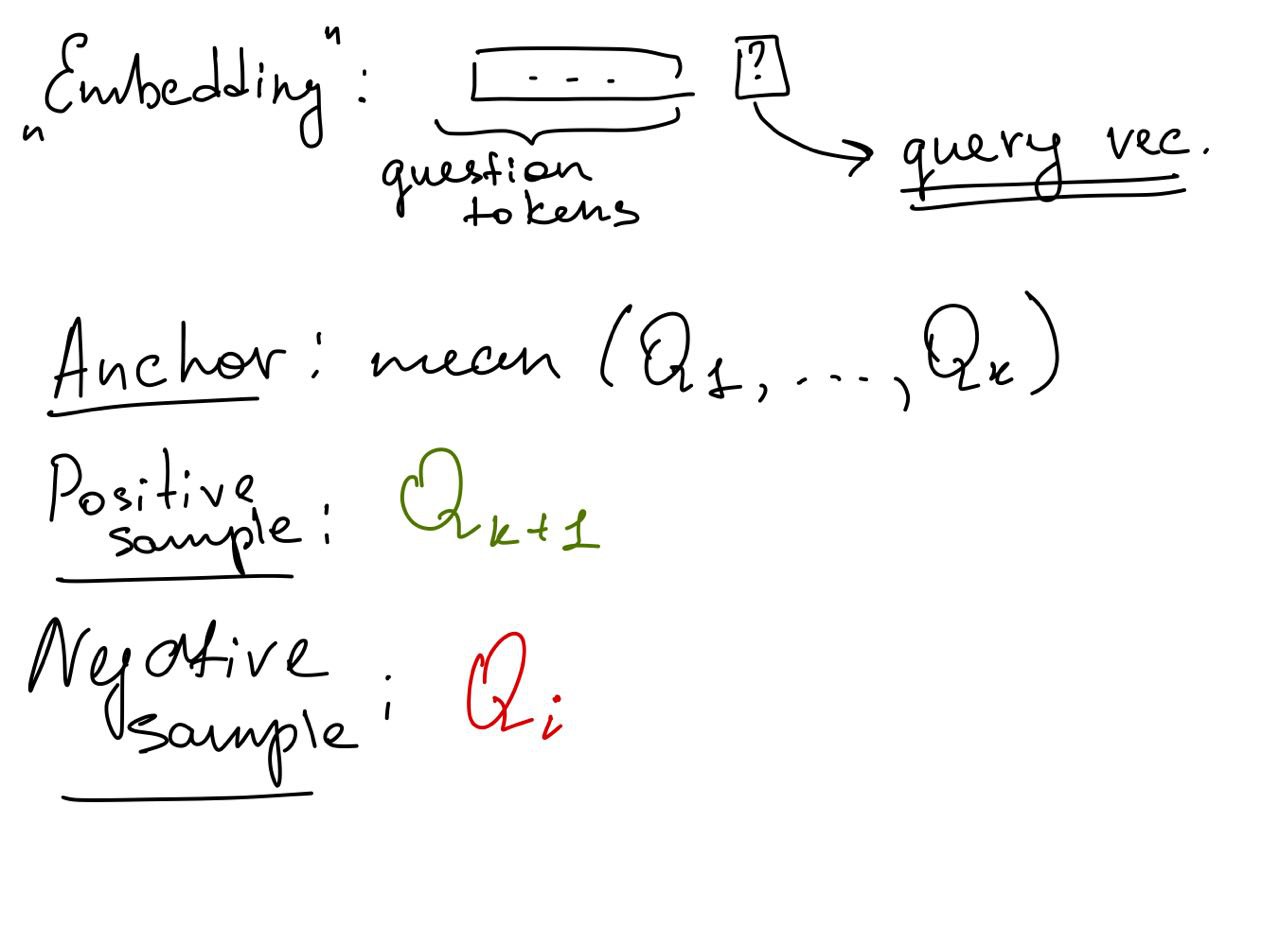 „Embedding": - - - ? query vec.
question
tokens
Anchor: mean (Q1, ..., Qk)
Positive
sample: Qk+1
Negative
sample: Qi